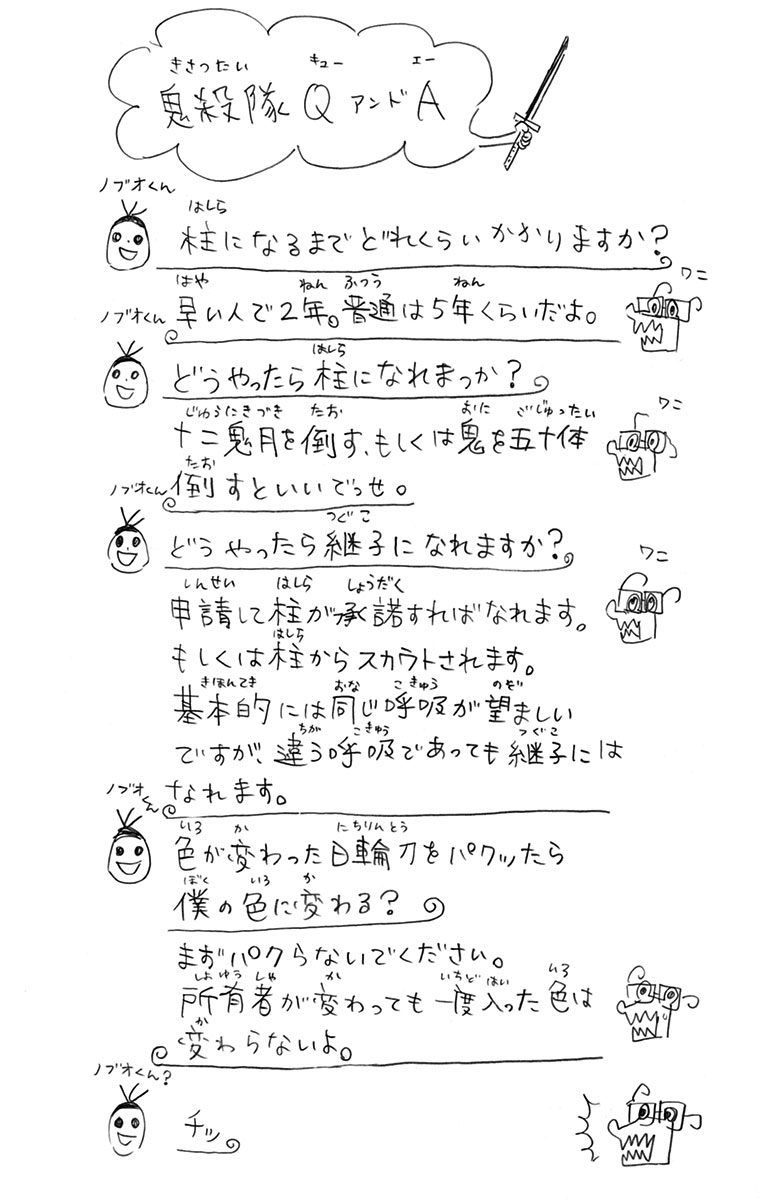 鬼殺隊 Q アンド A
きさったい キュー エー
ノブオくん
柱になるまでどれくらいかかりますか?
はしら
早い人で2年。普通は5年くらいだよ。
はや ねん ふつう ねん
ワニ
ノブオくん
どうやったら柱になれまっか?
はしら
十二鬼月を倒す、もしくは鬼を五十体
じゅうにきづき たお おに ごじゅったい
ワニ
倒すといいでっせ。
たお
ノブオくん
どうやったら継子になれますか?
つぐこ
申請して柱が承諾すればなれます。
しんせい はしら しょうだく
ワニ
もしくは柱からスカウトされます。
はしら
基本的には同じ呼吸が望ましい
きほんてき おな こきゅう のぞ
ですが、違う呼吸であっても継子には
ちが こきゅう つぐこ
なれます。
ノブオくん
色が変わった日輪刀をパクッたら
いろ か にちりんとう
僕の色に変わる?
ぼく いろ か
まずパクらないでください。
所有者が変わっても一度入った色は
しょゆうしゃ か いちど はい いろ
変わらないよ。
か
ノブオくん?
チッ